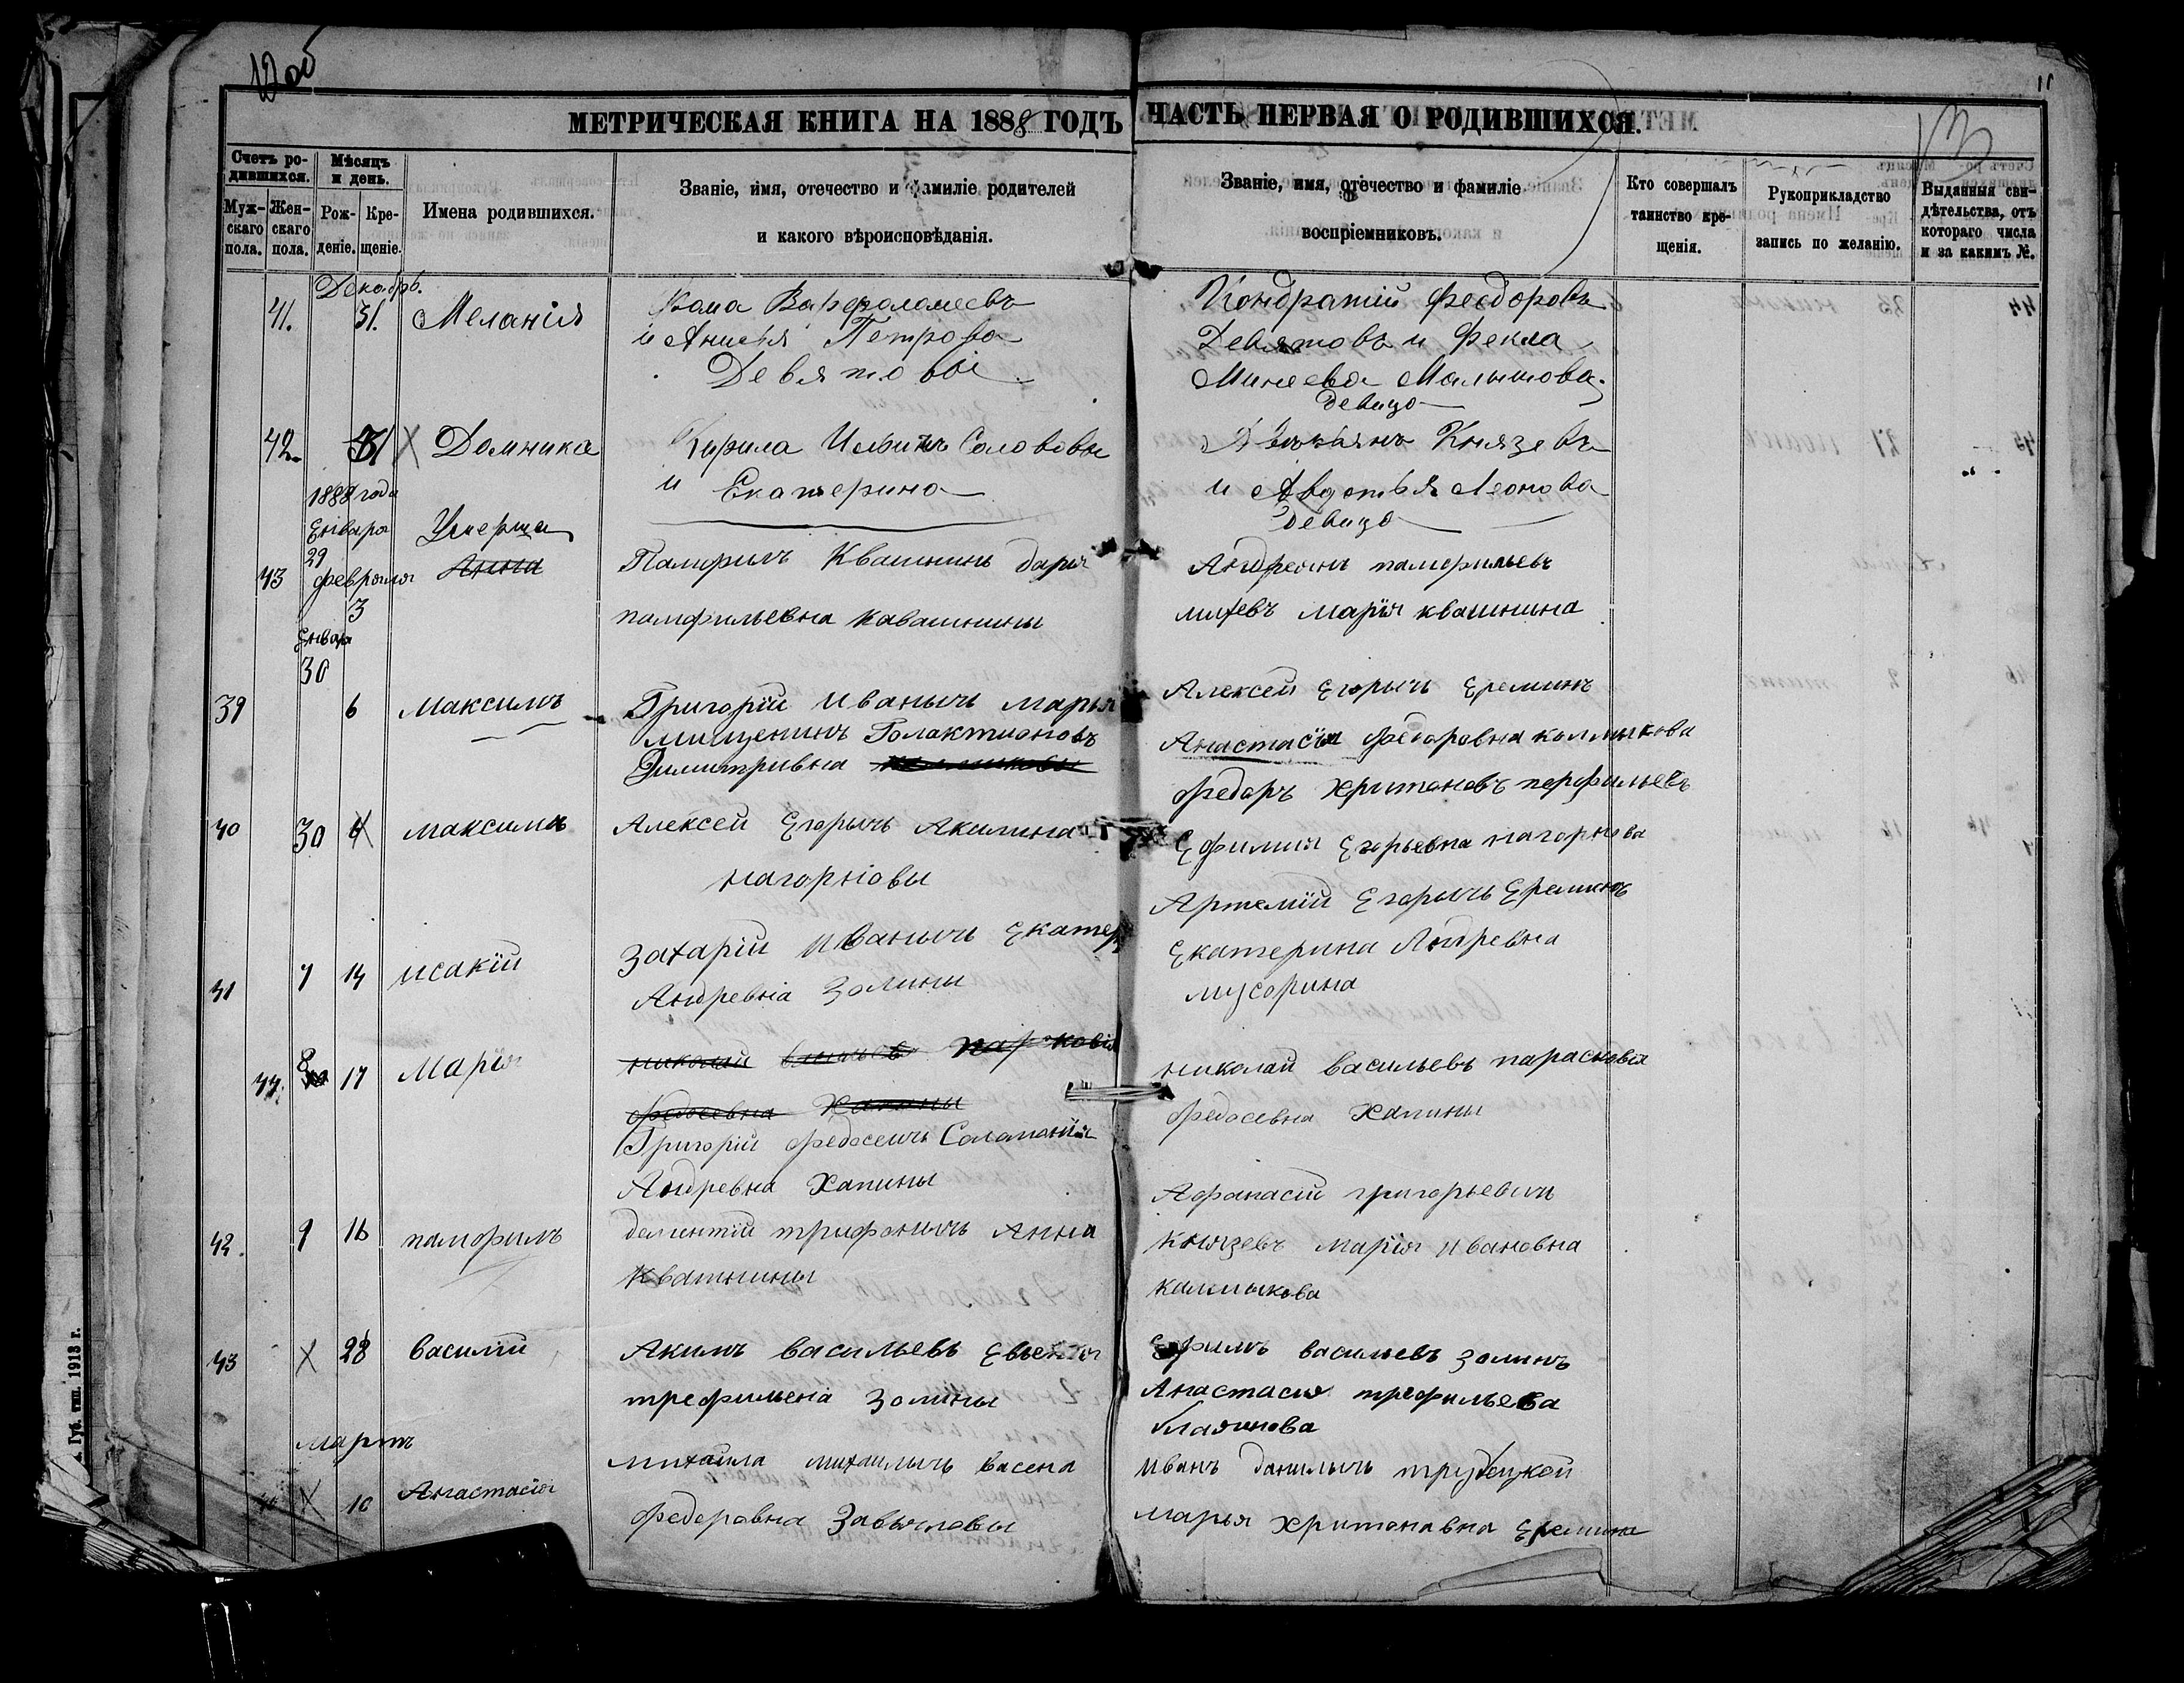 МЕТРИЧЕСКАЯ КНИГА НА 1888 ГОДЪ ЧАСТЬ ПЕРВАЯ О РОДИВШИХСЯ.
Счетъ ро-
дившихся.
Муж-
скаго
пола.
Жен-
скаго
пола.
Мѣсяцъ
и день.
Рож-
деніе.
Кре-
щеніе.
Имена родившихся.
Званіе, имя, отечество и фамиліе родителей
и какого вѣроисповѣданія.
Званіе, имя, отечество и фамиліе
воспріемниковъ.
Кто совершалъ
таинство кре-
щенія.
Рукоприкладство
запись по желанію.
Выданныя сви-
дѣтельства, отъ
котораго числа
и за какимъ №.
11
Декабрь.
41. 31. Меланія
Фома Варфоломеевъ
и Анисья Петрова
Девятовы
Кондратій Феодоровъ
Девятовъ и Фекла
Минеева Малышова.
девица
42. 31 Домника
Кирила Соловьвы
и Екатерина
Князевъ
и Авдотья Леонова
девица
1888 года
Енваря
29
февраля
3
43 Умерша
Анна
Памфилъ Квашнинъ дарья
памфильевна кавашнины
памфильевъ
Марїя квашнина
Енваря
30
39 6 максимъ
Григорїй Иванычъ марья
мищенинъ Галактионовъ
Димитривна
Алексей Егорычъ Ереминъ
Анастасїя Федоровна колмыкова
40 30 максимъ
Алексей Егорычъ Акилина
нагорновы
федоръ Хритоновъ перфильевъ
Ефимия Егорьевна нагорнова
41 7 14 исакїй
Захарїй Иванычъ Екатер
Андревна Золины
Артемїй Егорычъ Ереминъ
Екатерина Андревна
мусорина
44. 8 17 Марїя
николай парсковїя
федосевна Хапины
Григорїй федосеичъ Саломанїя
Андревна Хапины
николай васильевъ парасковїя
федосевна Хапины
42. 9 16 памфилъ
дементїй трифонычъ Анна
квашнины
Афанасїй григорьевичъ
князевъ марїя ивановна
калмыкова
43 28 василїй
Акимъ васильевъ
Золины
Ефимъ васильевъ Золинъ
Анастасия трефильева
мартъ
10 Анастасїя
михаила михаилычъ васена
федоровна Завьяловы
иванъ данилычъ трубецкой
марья Хритонавна Еремина
Губ. тип. 1913 г.